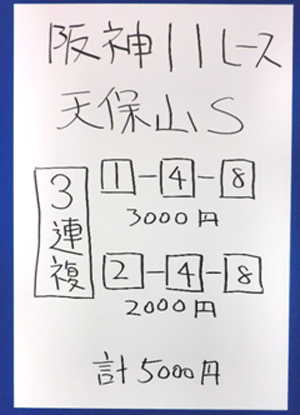 阪神11レース
天保山S
3連複
1-4-8
3000円
2-4-8
2000円
計5000円